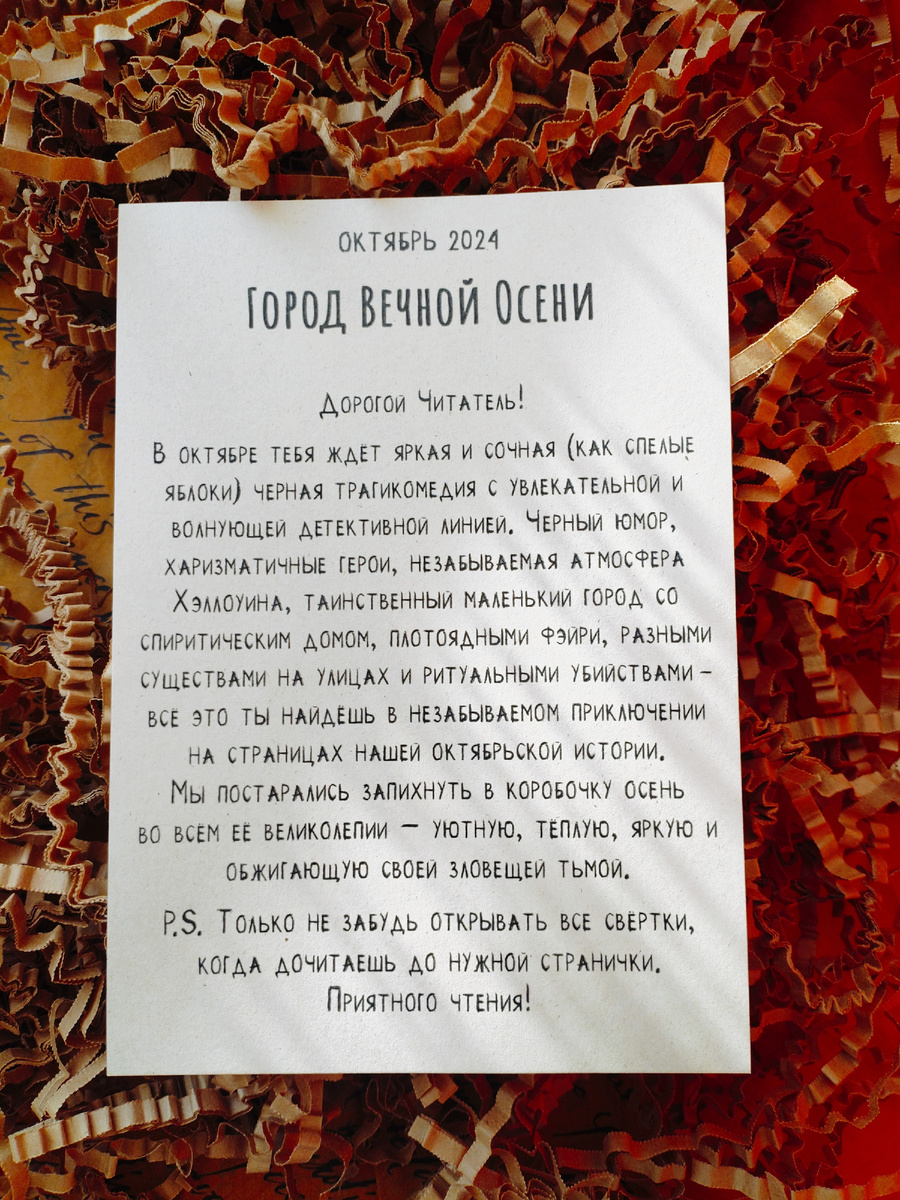 ОКТЯБРЬ 2024
ГОРОД ВЕЧНОЙ ОСЕНИ
ДОРОГОЙ ЧИТАТЕЛЬ!
В ОКТЯБРЕ ТЕБЯ ЖДЁТ ЯРКАЯ И СОЧНАЯ (КАК СПЕЛЫЕ
ЯБЛОКИ) ЧЕРНАЯ ТРАГИКОМЕДИЯ С УВЛЕКАТЕЛЬНОЙ И
ВОЛНУЮЩЕЙ ДЕТЕКТИВНОЙ ЛИНИЕЙ. ЧЕРНЫЙ ЮМОР,
ХАРИЗМАТИЧНЫЕ ГЕРОИ, НЕЗАБЫВАЕМАЯ АТМОСФЕРА
ХЭЛЛОУИНА, ТАИНСТВЕННЫЙ МАЛЕНЬКИЙ ГОРОД СО
СПИРИТИЧЕСКИМ ДОМОМ, ПЛОТОЯДНЫМИ ФЭЙРИ, РАЗНЫМИ
СУЩЕСТВАМИ НА УЛИЦАХ И РИТУАЛЬНЫМИ УБИЙСТВАМИ –
ВСЁ ЭТО ТЫ НАЙДЁШЬ В НЕЗАБЫВАЕМОМ ПРИКЛЮЧЕНИИ
НА СТРАНИЦАХ НАШЕЙ ОКТЯБРЬСКОЙ ИСТОРИИ.
МЫ ПОСТАРАЛИСЬ ЗАПИХНУТЬ В КОРОБОЧКУ ОСЕНЬ
ВО ВСЁМ ЕЁ ВЕЛИКОЛЕПИИ – УЮТНУЮ, ТЁПЛУЮ, ЯРКУЮ И
ОБЖИГАЮЩУЮ СВОЕЙ ЗЛОВЕЩЕЙ ТЬМОЙ.
P.S. ТОЛЬКО НЕ ЗАБУДЬ ОТКРЫВАТЬ ВСЕ СВЁРТКИ,
КОГДА ДОЧИТАЕШЬ ДО НУЖНОЙ СТРАНИЧКИ.
ПРИЯТНОГО ЧТЕНИЯ!
this